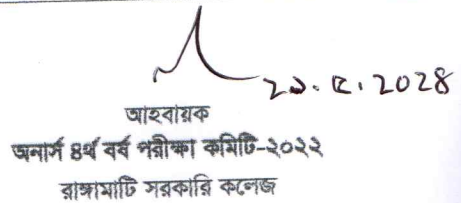 ২১.৫.২০২৪
আহবায়ক
অনার্স ৪র্থ বর্ষ পরীক্ষা কমিটি-২০২২
রাঙ্গামাটি সরকারি কলেজ